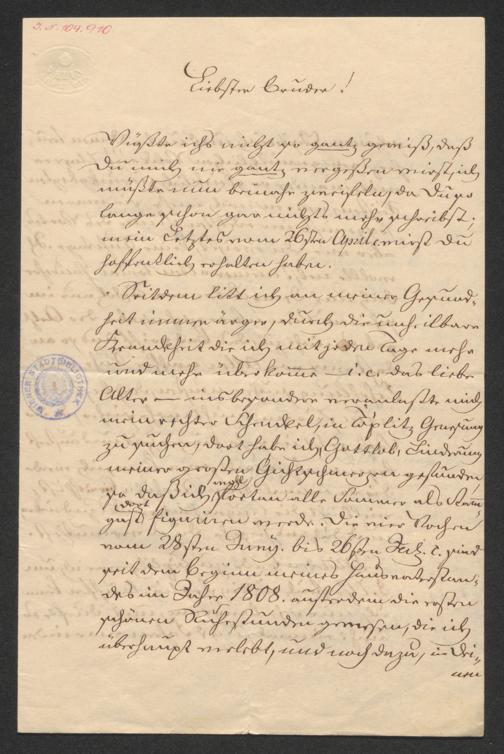 I.N. 104.910
Liebster Bruder!
Wüßte ichs nicht so gantz gewiß, daß
Du mich nie gantz vergeßen wirst, ich
müßte nun beinahe zweifeln, da Du so
lange schon gar nichts mehr schreibst.
mein Letztes vom 26sten April wirst du
hoffentlich erhalten haben.
Seitdem litt ich an meiner Gesund-
heit immer ärger, durch die unheilbare
Krankheit die ich mit jeden Tage mehr
und mehr überkome — i. e. das liebe
Alter — insbesondere veranlaßte mich
mein rechter Schenkel, in Töplitz Genesung
zu suchen, dort habe ich, Gottlob, Linderung
meiner grosten Gichtschmerzen gefunden,
so daß ich wohl fortan alle Sommer als
dort
gast figuriren werde. Die vier Wochen
vom 28sten Juny. bis 26sten Jul. c. sind
seit dem Beginn meines Hausvaterstan-
des im Jahre 1808. ausserdem die ersten
schönen Ruhestunden gewesen, die ich
überhaupt verlebt, und noch dazu, in Dei-
nen
WIENER STADTBIBLIOTHEK